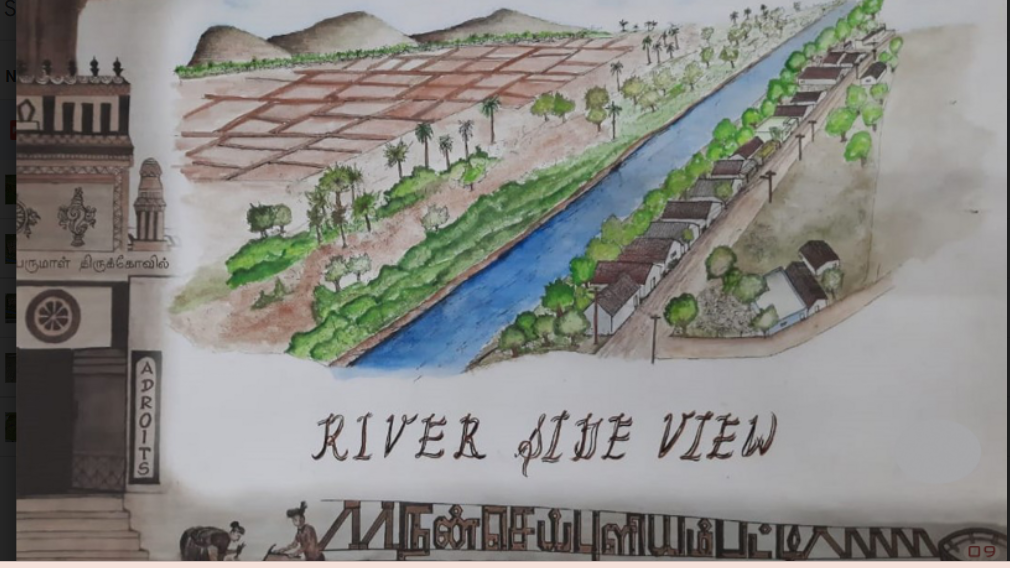 பருமாள் திருக்கோவில்
ADROITS
RIVER SIDE VIEW
நன்செய்புளியம்பட்டி
09